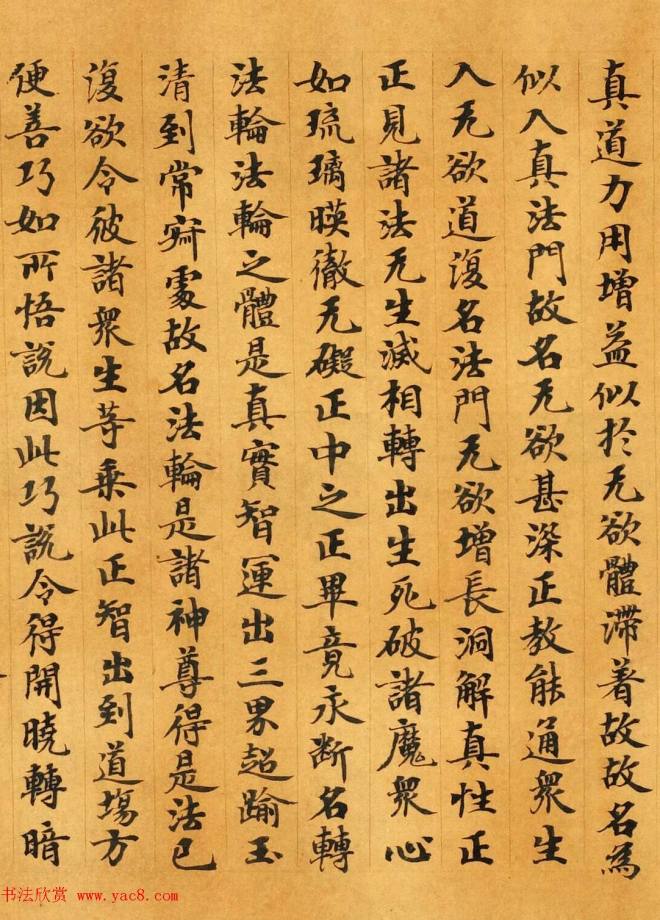 真道力用增益似於无欲體滯著故故名為
似入真法門故名无欲甚深正教能通衆生
入无欲道復名法門无欲增長洞解真性正
正見諸法无生滅相轉出生死破諸魔衆心
如琉璃暎徹无礙正中之正畢竟永断名轉
法輪法輪之體是真實智運出三界超踰玉
清到常㝛處故名法輪是諸神尊得是法已
復欲令彼諸衆生䓁乗此正智出到道塲方
便善巧如所悟説因此巧説令得開曉轉暗
书法欣赏 www.yac8.com